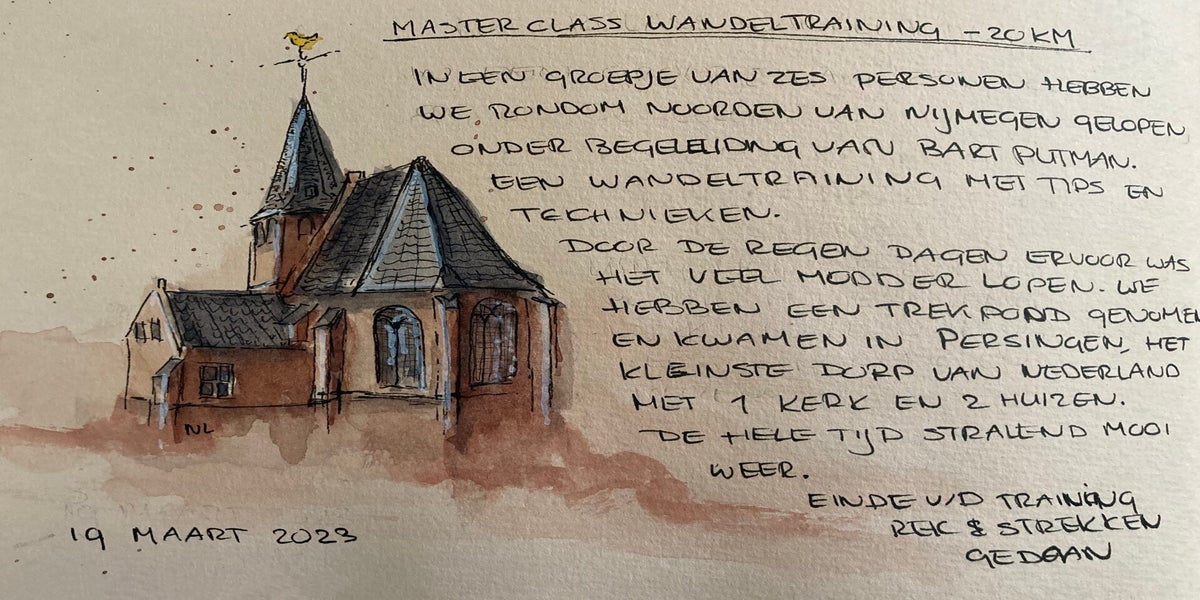 MASTERCLASS WANDELTRAINING - 20KM
IN EEN GROEPJE VAN ZES PERSONEN HEBBEN
WE RONDOM NOORDEN VAN NIJMEGEN GELOPEN
ONDER BEGELEIDING VAN BART PUTMAN.
EEN WANDELTRAINING MET TIPS EN
TECHNIEKEN.
DOOR DE REGEN DAGEN ERVOOR WAS
HET VEEL MODDER LOPEN. WE
HEBBEN EEN TREKPOND GENOMEN
EN KWAMEN IN PERSINGEN, HET
KLEINSTE DORP VAN NEDERLAND
MET 1 KERK EN 2 HUIZEN.
DE HELE TIJD STRALEND MOOI
WEER.
EINDE V/D TRAINING
REK & STREKKEN
GEDAAN
NL
19 MAART 2023